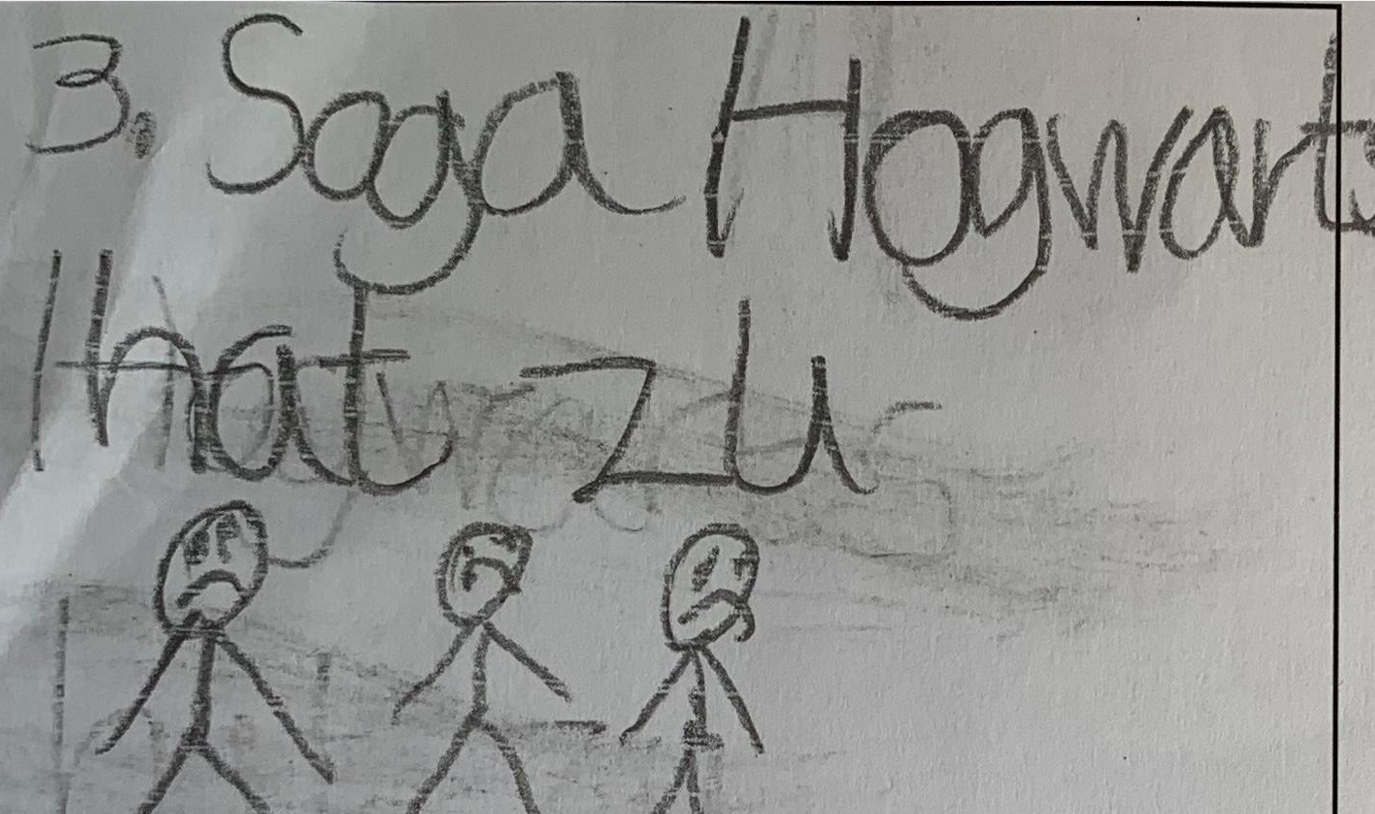 3. Soga Hogwarts
hat zu